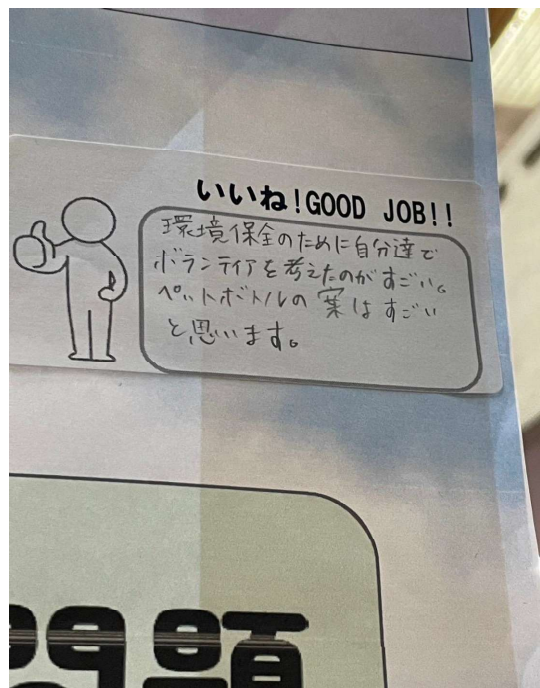 いいね!GOOD JOB!!
環境保全のために自分達で
ボランティアを考えたのがすごい。
ペットボトルの案はすごい
と思います。